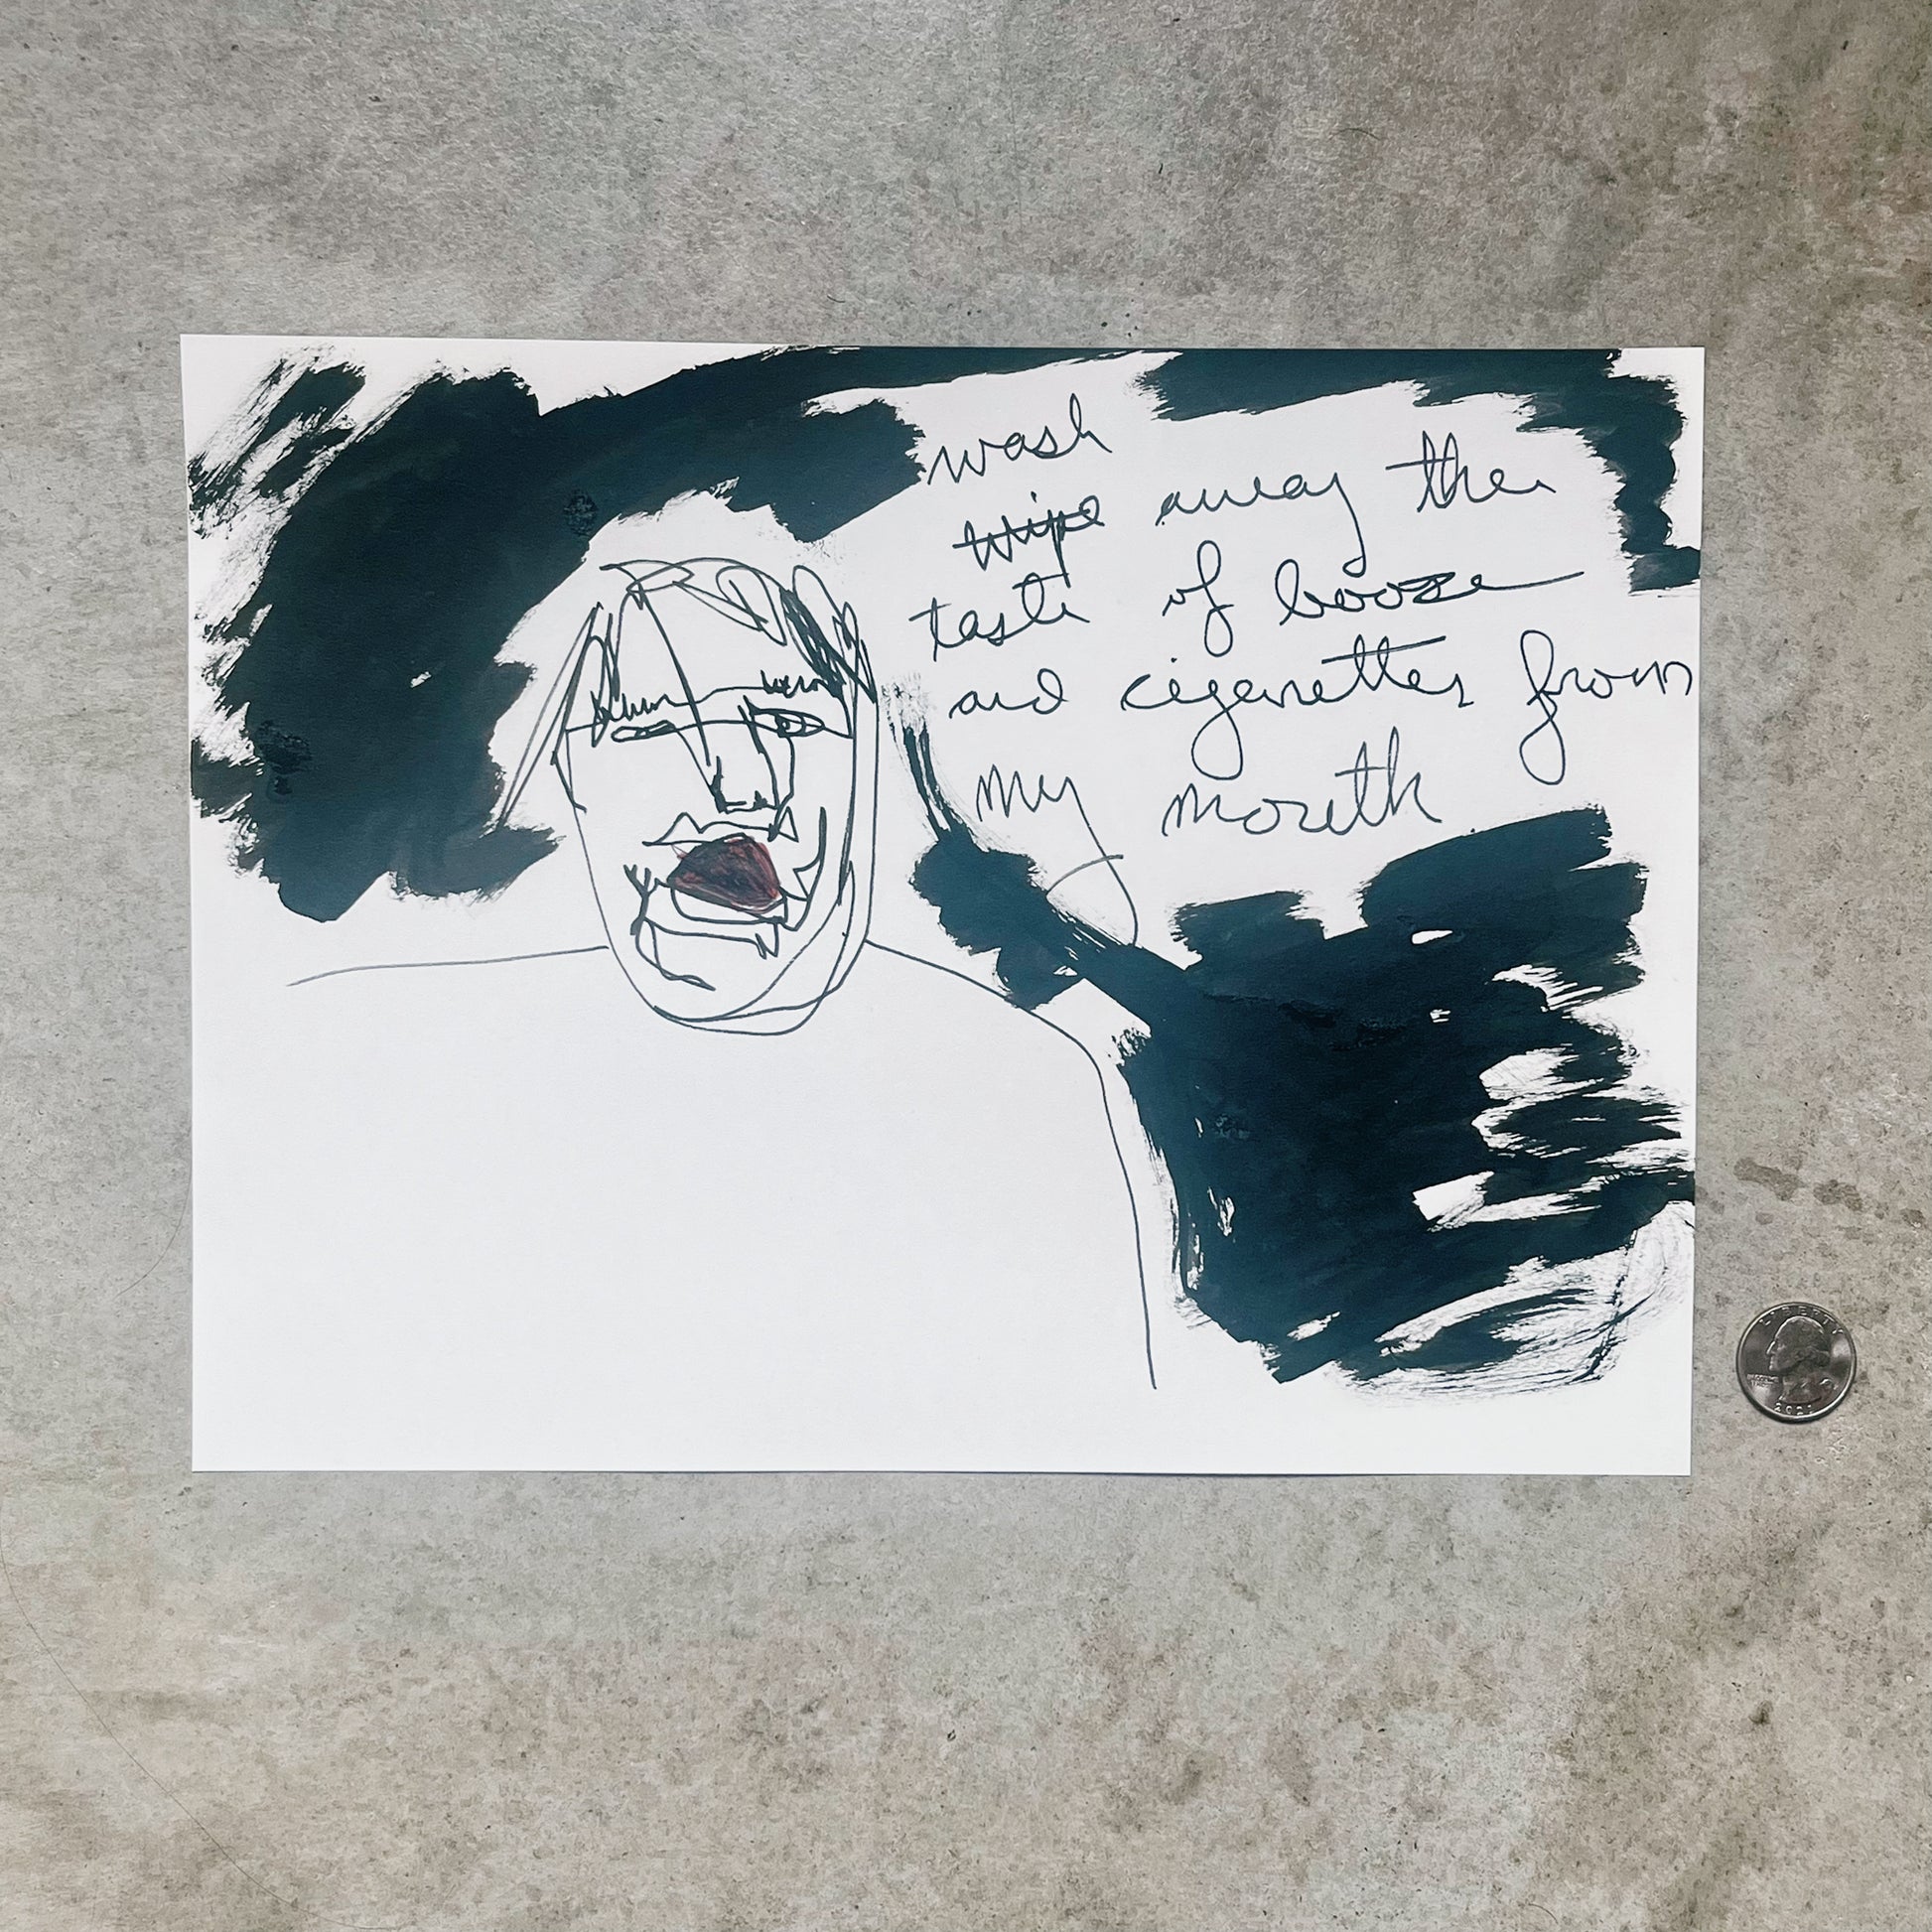 wash
wipe away the
taste of booze
and cigarettes from
my mouth
LIBERTY